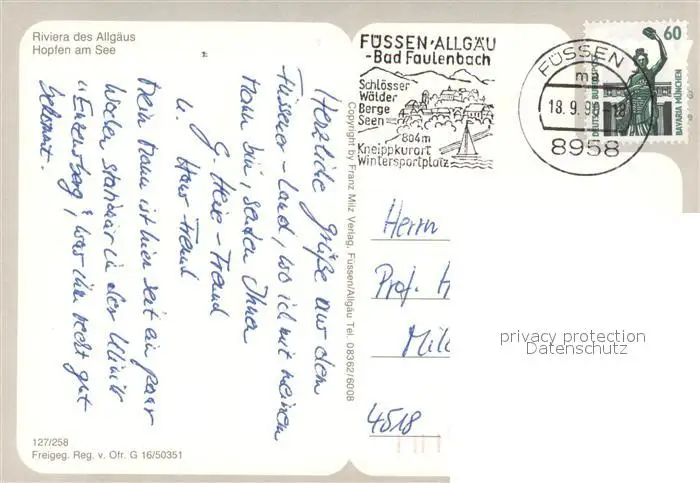 Riviera des Allgäus
Hopfen am See
Herzliche Grüße aus dem
Füssener-Land, wo ich mit meinem
Mann bin, senden Ihnen
G. Heise-Freund
u. Hans Freund
Mein Mann ist hier seit ein paar
Wochen stationär in der Klinik
"Enzensberg", was ihm recht gut
bekommt.
127/258
Freigeg. Reg. v. Ofr. G 16/50351
Copyright by Franz Milz Verlag, Füssen/Allgäu Tel. 08362/6008
FÜSSEN·ALLGÄU
-Bad Faulenbach
Schlösser
Wälder
Berge
Seen
804m
Kneippkurort
Wintersportplatz
FÜSSEN
ma
18.9.9
8958
60
DEUTSCHE BUNDESPOST
BAVARIA MÜNCHEN
Herrn
Prof. H
4518
privacy protection
Datenschutz